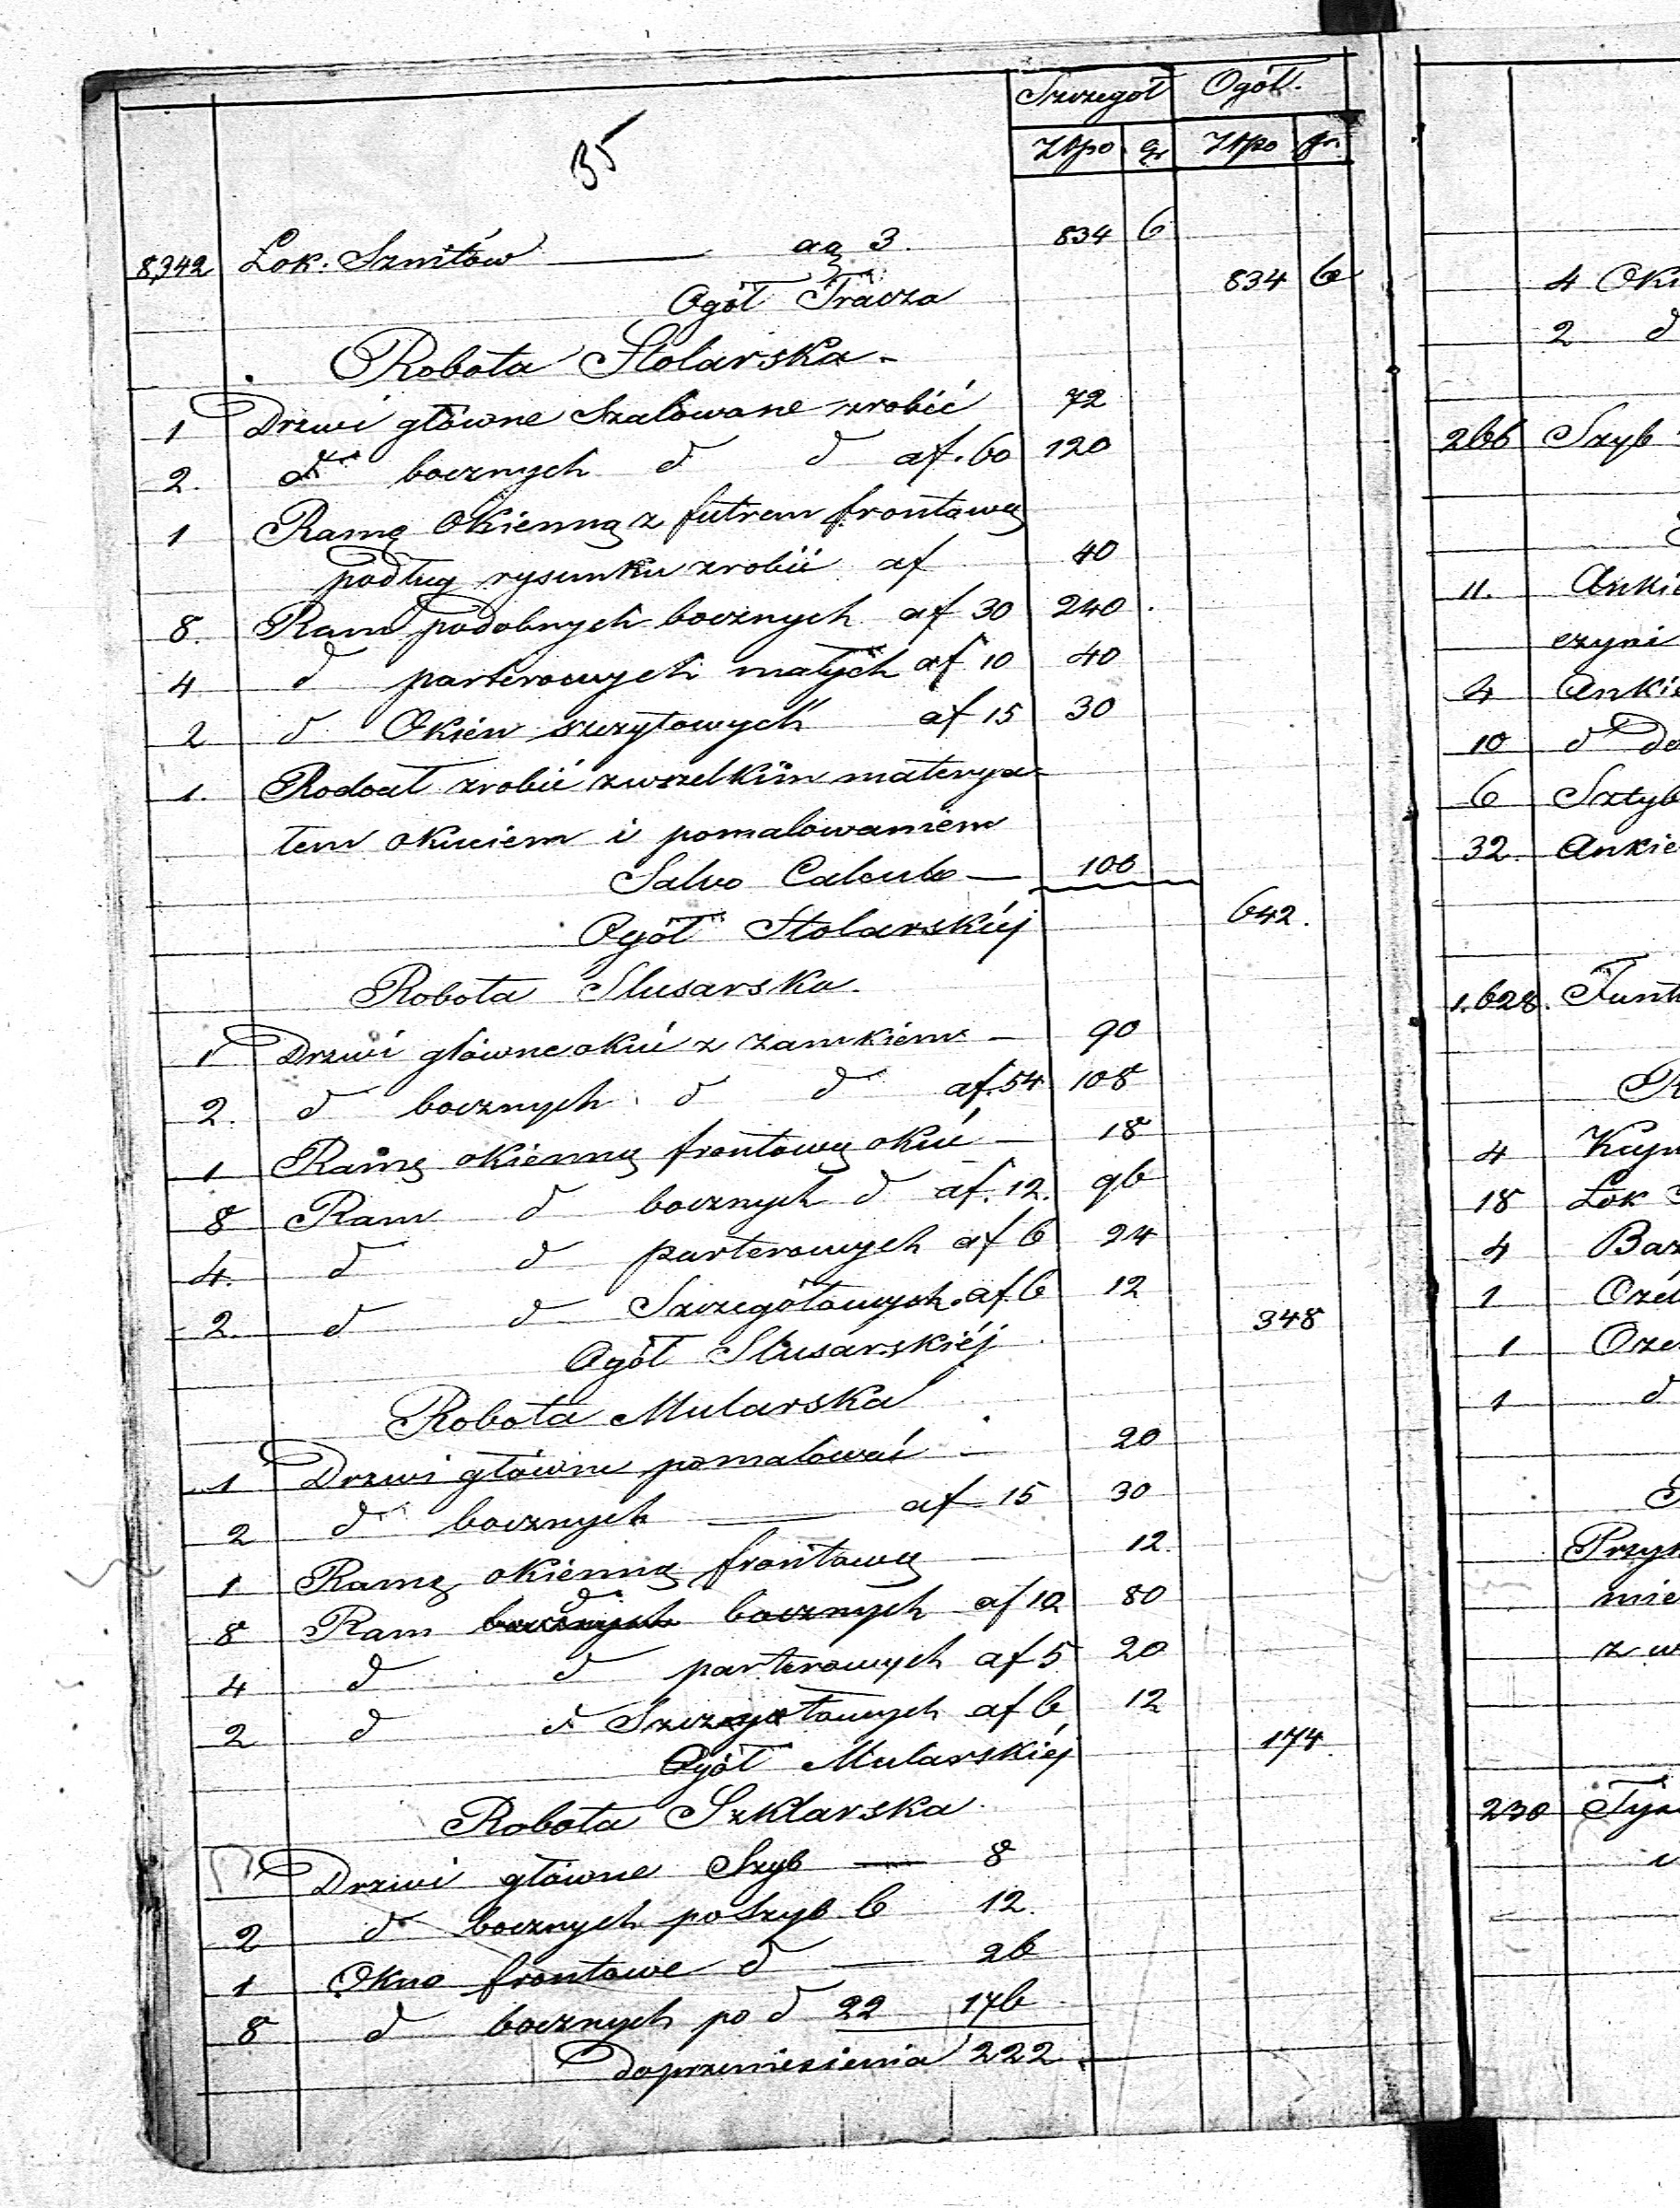 Szczegół Ogół.
Ztpo gr Ztpo gr.
35
8,342 Łok. Sznitów — ag 3. 834 6
Ogół Tracza 834 6
Robota Stolarska -
1 Drzwi główne Szalowane zrobić 72
2. d bocznych d d af. 60 120
1 Ramę Okienną z futrem frontową
podług rysunku zrobić af 40
8. Ram podobnych bocznych af 30 240
4 d parterowych małych af 10 40
2 d Okien szczytowych af 15 30
1. zrobić z wszelkim materya-
łem okuciem i pomalowaniem
Salvo Calculo — 100
Ogół Stolarskiéj 642.
Robota Slusarska.
1 Drzwi główne okuć z zamkiem - 90
2. d bocznych d d af. 54 108
1 Ramę okienną frontową okuć — 18
8 Ram d bocznych d af. 12. 96
4. d d parterowych af 6 24
2. d d Szczegółowych af. 6 12
Ogół Slusarskiéj 348
Robota Mularska
1 Drzwi główne pomalować — 20
2 d bocznych — af 15 30
1 Ramę okienną frontową — 12.
8 Ram bocznych d bocznych af 10 80
4 d d parterowych af 5 20
2 d d Szczytowych af 6 12
Ogół Mularskiéj 174.
Robota Szklarska
Drzwi główne Szyb — 8
2 d bocznych po Szyb 6 12.
1 Okno frontowe d — 26
8 d bocznych po d 22 176
do przeniesienia 222.
4
2 d
266 Szyb
11.
czyni
4
10 d
6
32.
1.628.
4
18 Łok
4
1
1
1 d
230